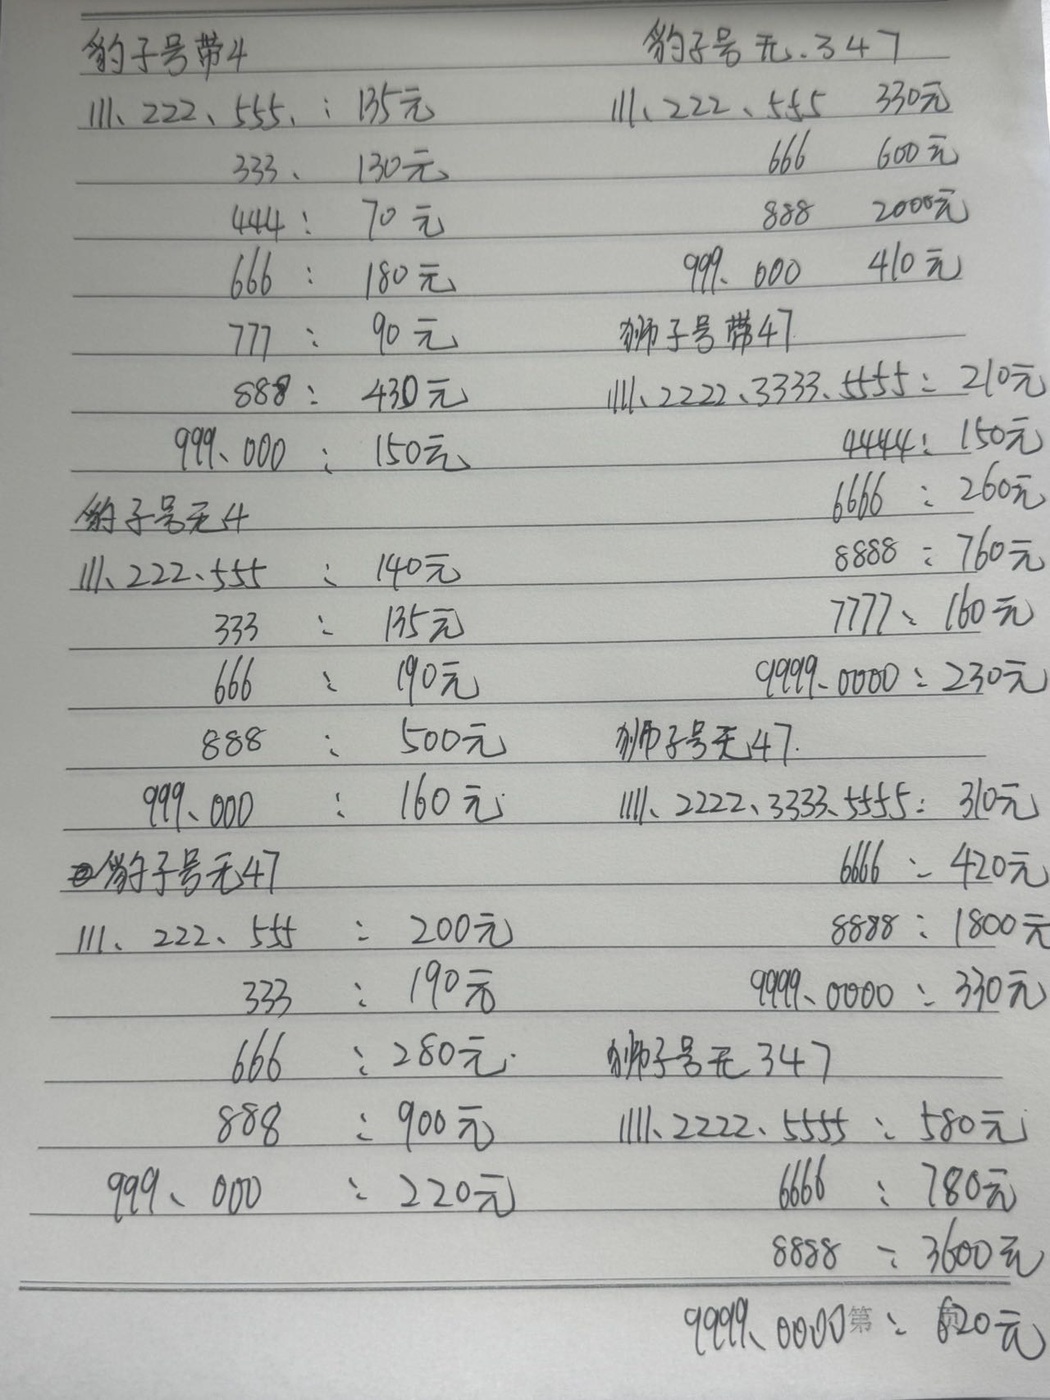 豹子号带4
111、222、555、：135元
333、 130元
444： 70元
666： 180元
777： 90元
888： 430元
999、000： 150元
豹子号无4
111、222、555： 140元
333： 135元
666： 190元
888： 500元
999、000： 160元
豹子号无47
111、222、555： 200元
333： 190元
666： 280元
888： 900元
999、000： 220元
豹子号无.347
111、222、555 330元
666 600元
888 2000元
999、000 410元
狮子号带47
1111、2222、3333、5555：210元
4444：150元
6666：260元
8888：760元
7777：160元
9999、0000：230元
狮子号无47.
1111、2222、3333、5555：310元
6666：420元
8888：1800元
9999、0000：330元
狮子号无347
1111、2222、5555：580元
6666：780元
8888：3600元
9999、0000：620元
第 页